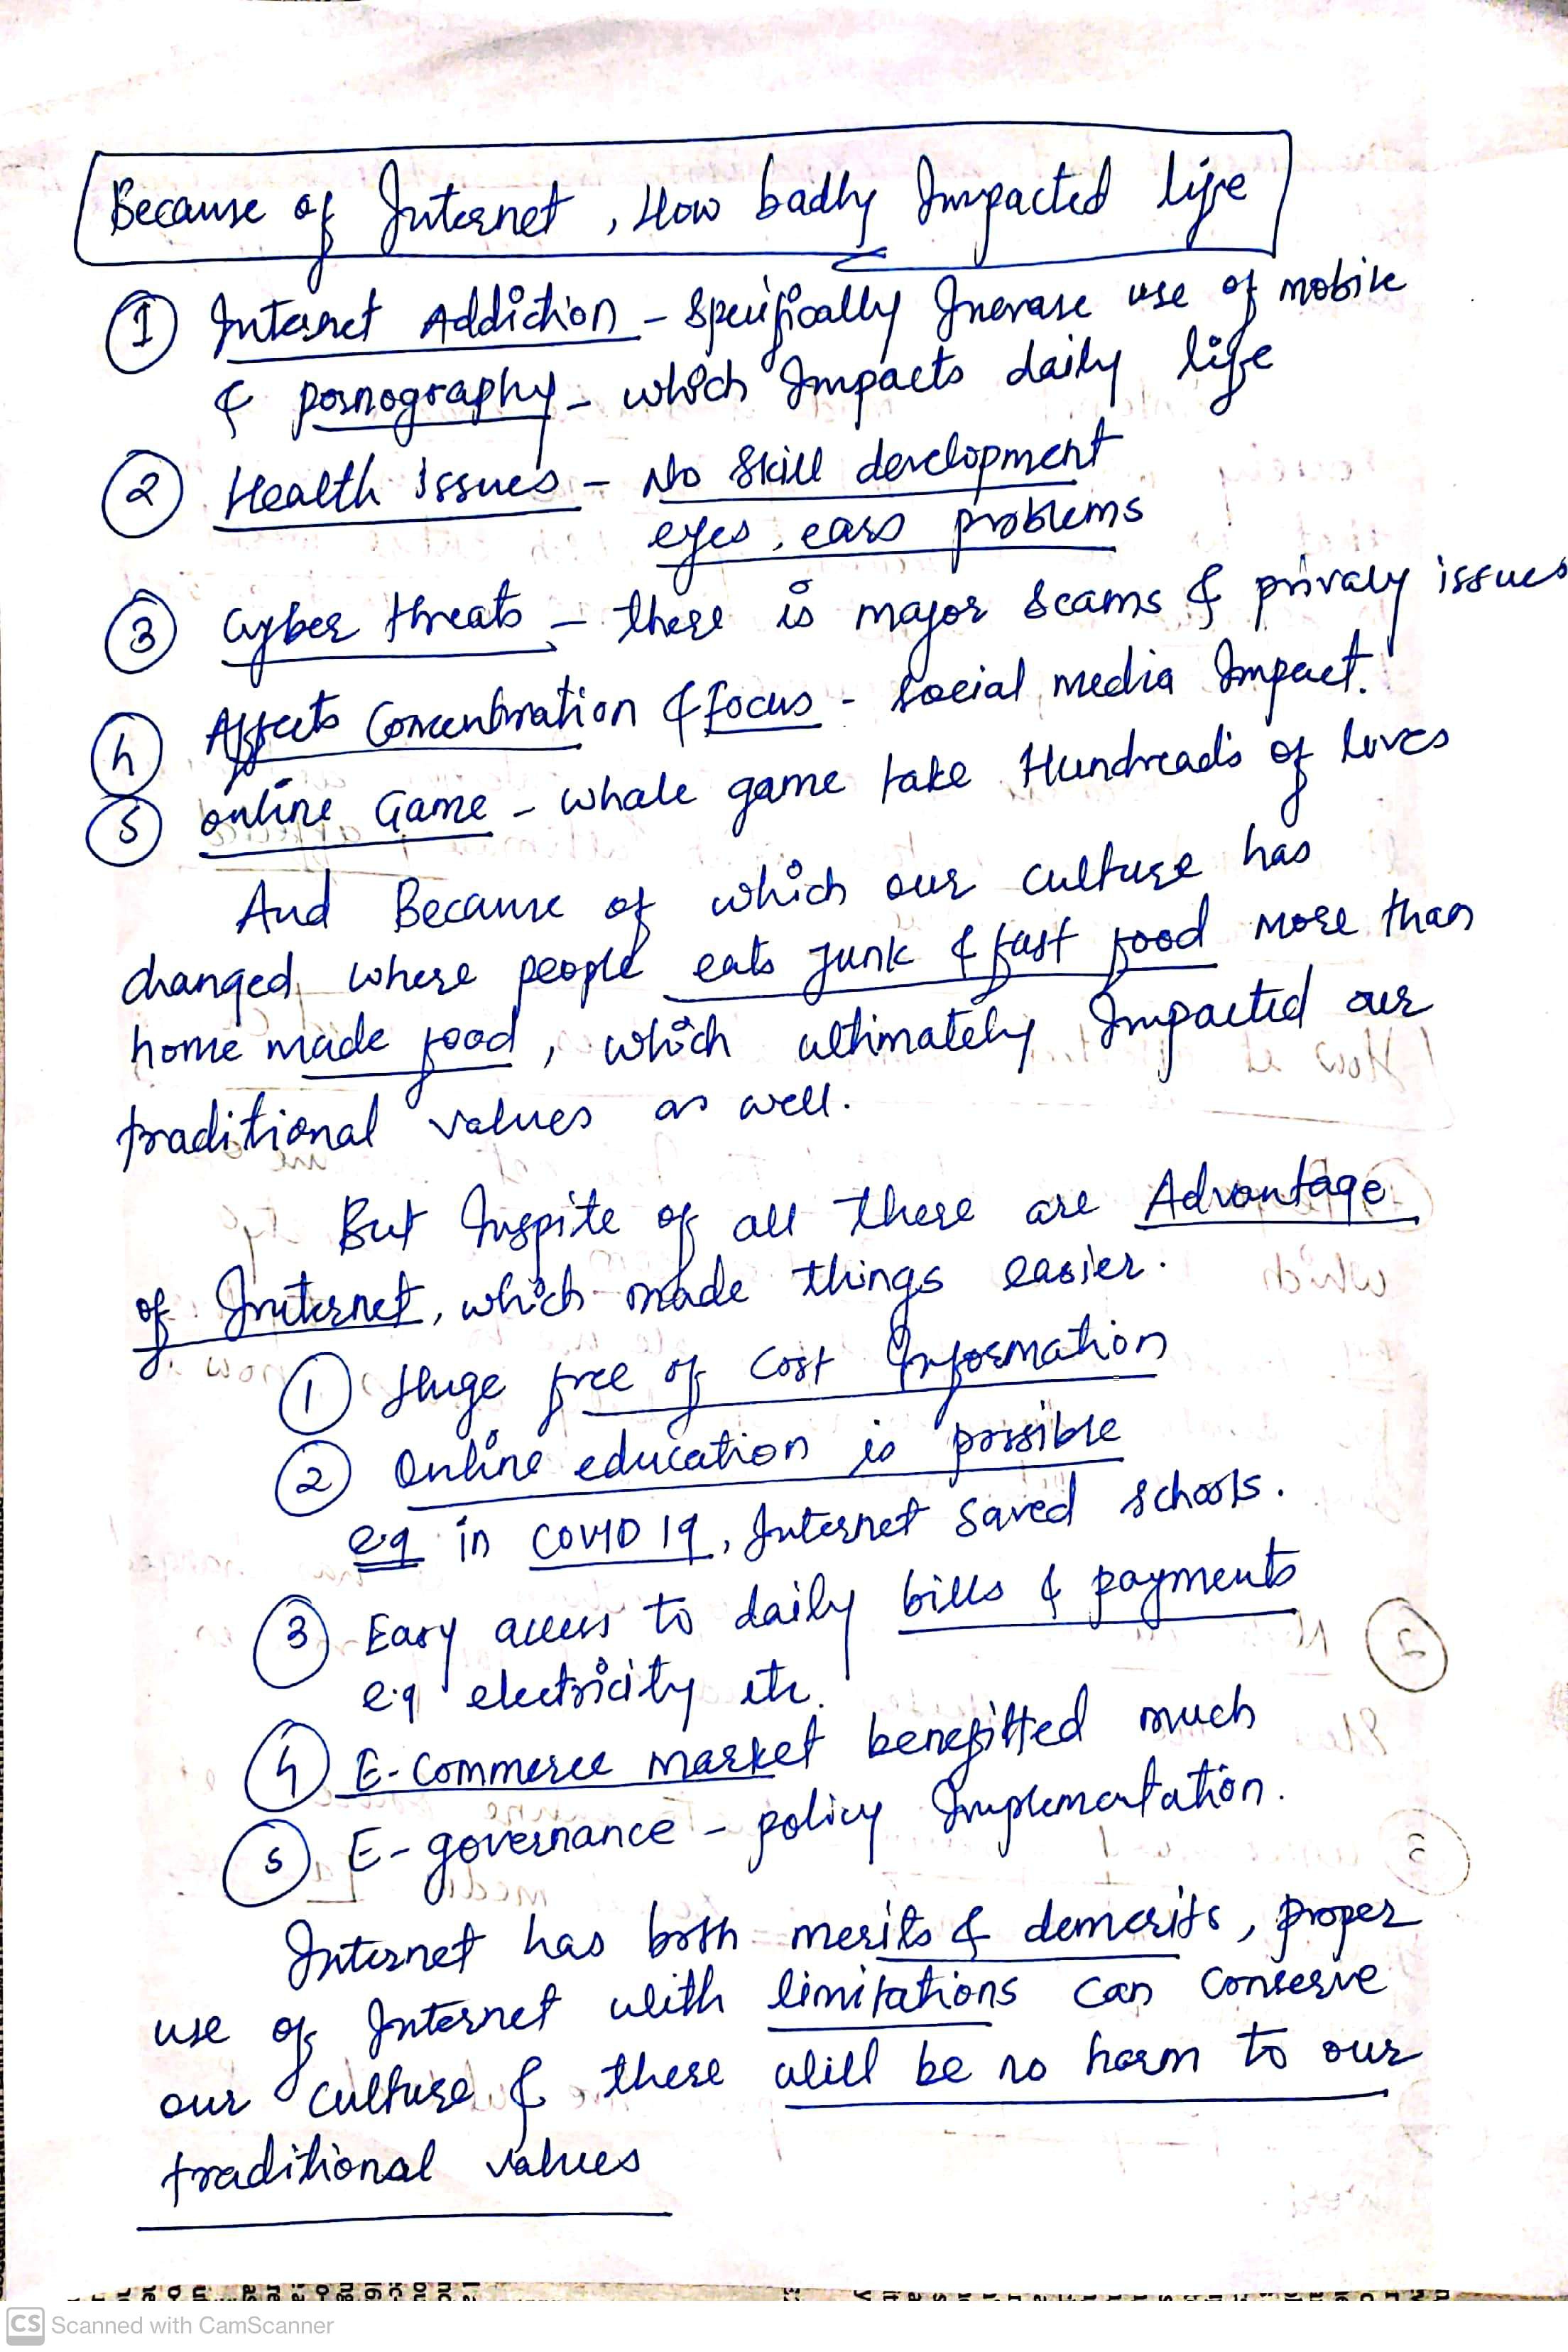 Because of Internet, How badly Impacted life
① Internet Addiction - Specifically Increase use of mobile
& pornography - which Impacts daily life
② Health issues - No Skill development
eyes, ears problems
③ Cyber threats - there is major scams & privacy issues
④ Affects Concentration & Focus - Social media Impact.
⑤ online Game - whale game take Hundread's of lives
And Because of which our culture has
changed, where people eats Junk & fast food more than
home made food, which ultimately Impacted our
traditional values as well.
But Inspite of all there are Advantage
of Internet, which made things easier.
① Huge free of cost Information
② Online education is possible
eg in COVID 19, Internet Saved schools.
③ Easy access to daily bills & payments
e.g electricity etc.
④ E-Commerce market benefitted much
⑤ E-governance - policy Implementation.
Internet has both merits & demerits, proper
use of Internet with limitations can conserve
our culture & there will be no harm to our
traditional values
CS Scanned with CamScanner